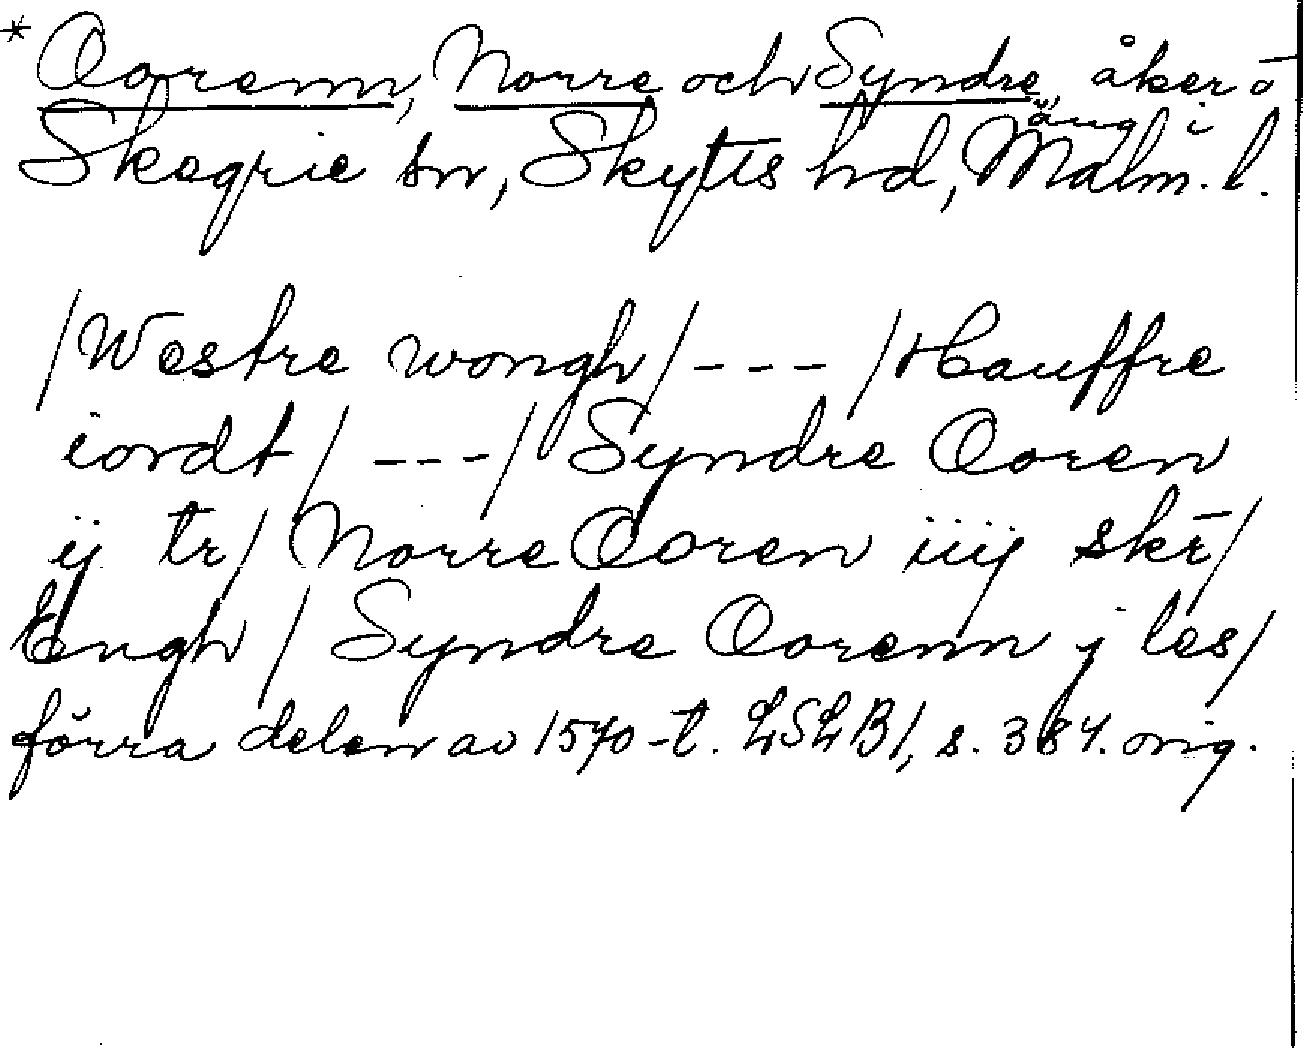 * Oorenn, Norre och Syndre, åker o
äng i
Skegrie sn, Skytts hd, Malm. l.
/Westre wongh/ --- /Hauffre
iordt/ --- / Syndre Ooren
ij tr/ Norre Ooren iiij skr/
Engh/ Syndre Oorenn j les/
förra delen av 1570-t. LSLB1, s. 384. orig.